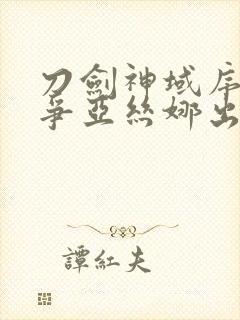 刀劍神域序
爭亞絲娜出
譚紅夫